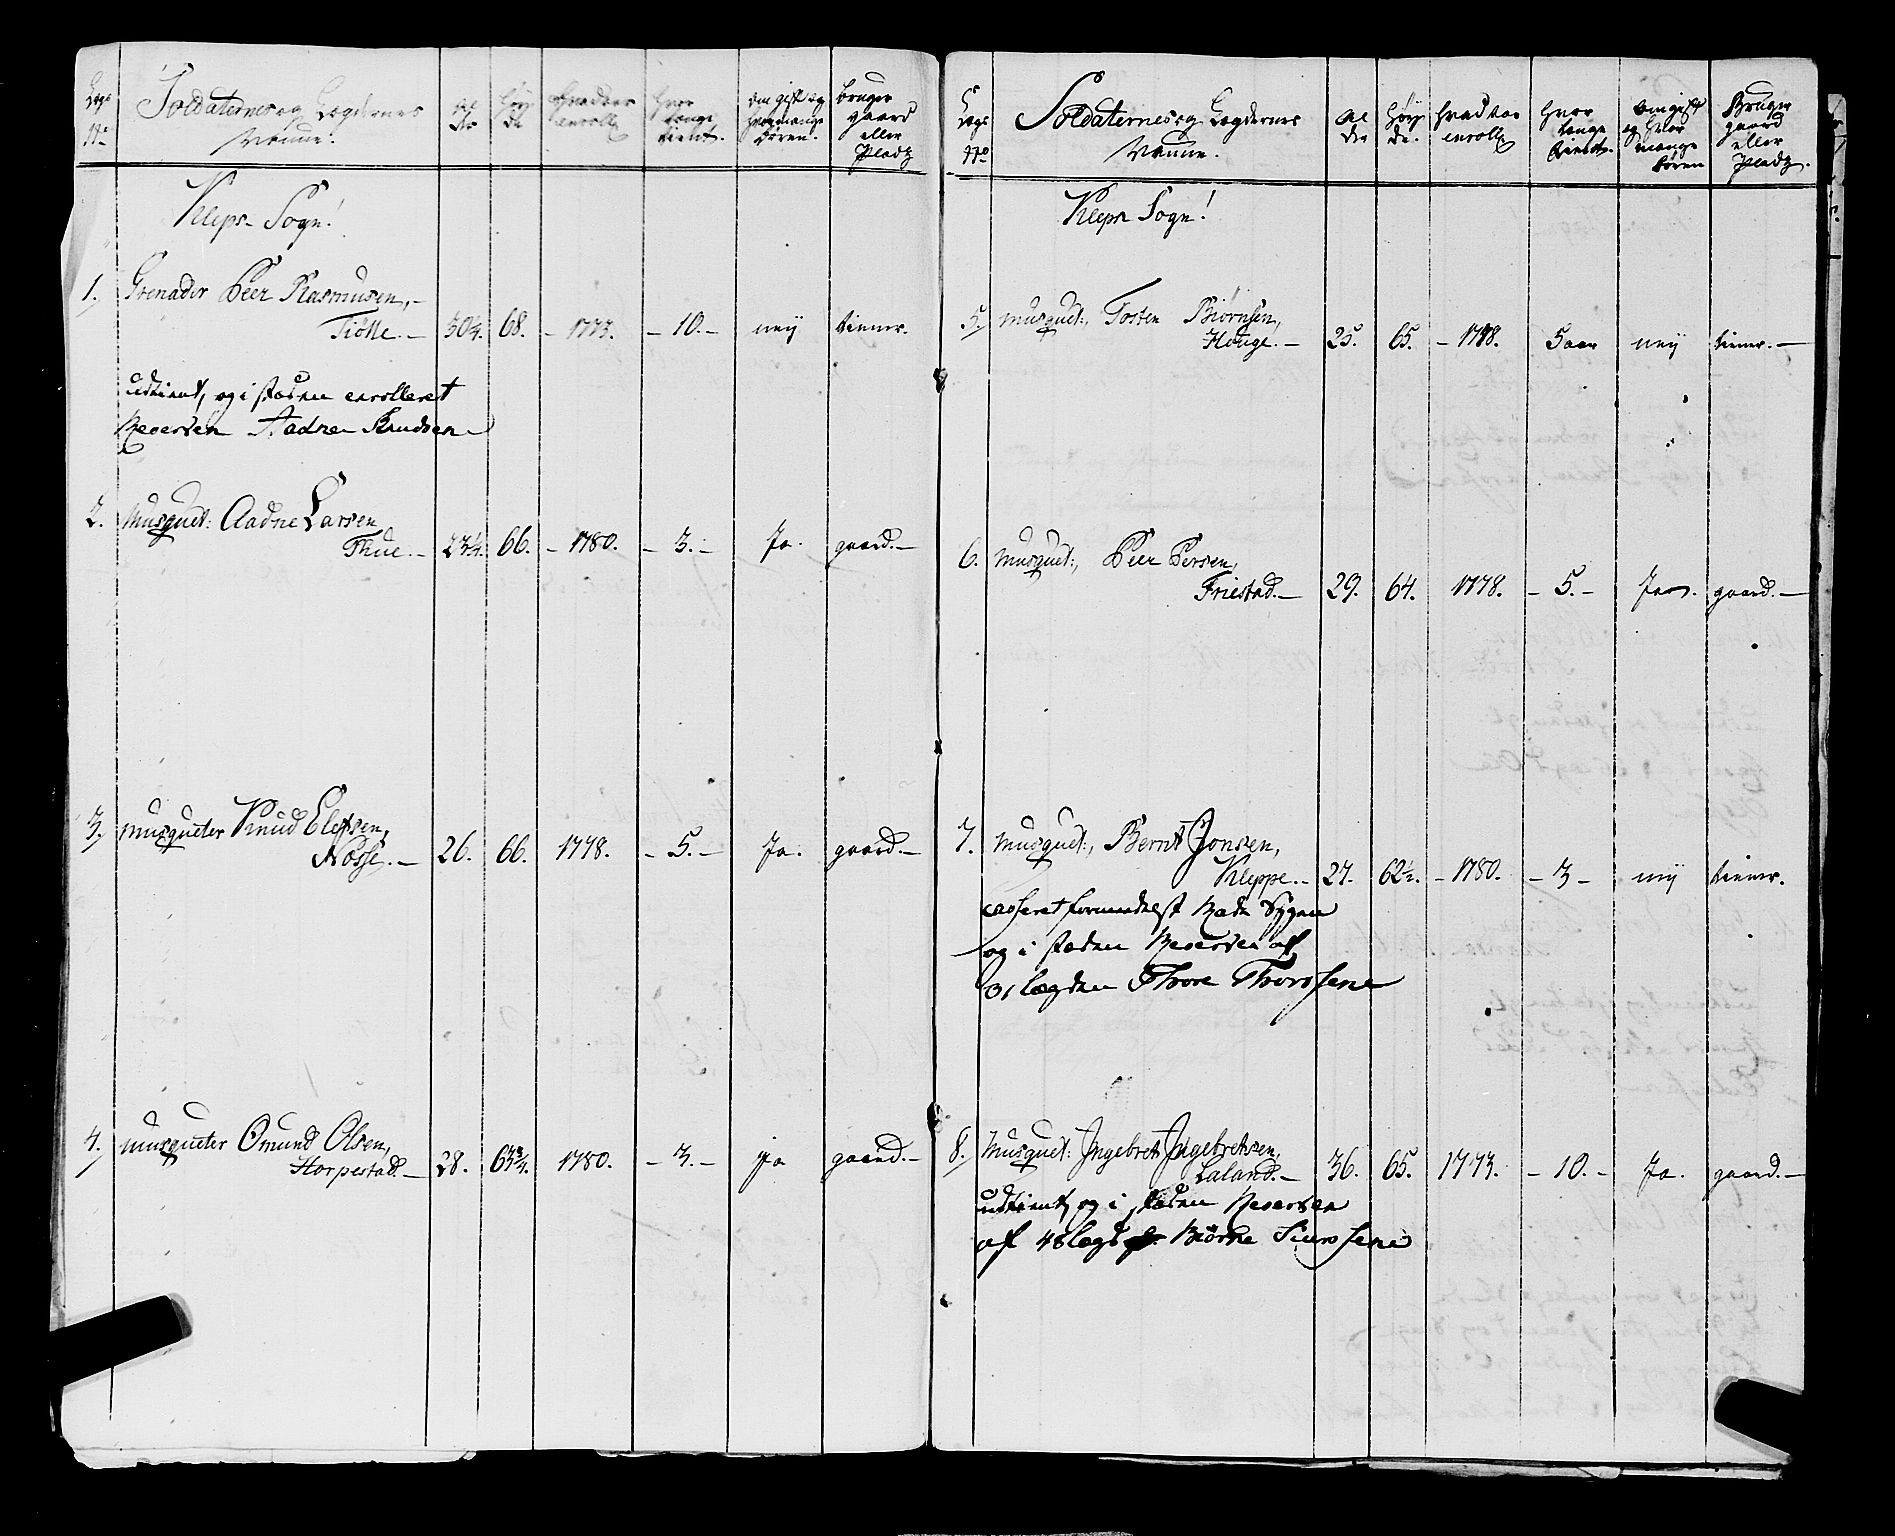 Lægs No Soldaternes og Lægdernes Navne. Al der Høy de hvad aar enroll hvor længe tient. om gift og hvor mange Børen. bruger gaard eller Pladz
Kleps Sogn!
1. Grenader Peer Rasmusen,
Tiøtte. 30¼. 68. 1773. 10. ney tiener.
udtient, og i stæden enrolleret
Reserven Aadne Knudsen
2. Musquet: Aadne Larsen
Thue. 23¼. 66. 1780. 3. Ja. gaard.
3. Musqueter Knud Elefsen,
Nosse. 26. 66. 1778. 5. Ja. gaard.
4. Musqueter Omund Olsen,
Horpestad. 28. 63¾. 1780. 3. ja gaard.
Lægs No Soldaternes og Lægdernes Navne. Al der Høy de. hvad aar enroll hvor længe tient. om gift og hvor mange Børen Bruger gaard eller Pladz.
Kleps Sogn!
5. Musquet:, Tosten Biørnsen,
Houge. 25. 65. 1778. 5 aar ney tiener.
6. Musquet:, Peer Persen,
Friestad. 29. 64. 1778. 5. Ja. gaard.
7. Musquet:, Bernt Jonsen,
Kleppe. 27. 62½. 1780. 3 ney tiener.
casseret formedelst Bade Sygen
og i stæden Reserven af
31 lægden Thore Thorssene
8. Musquet: Ingebret Ingebretsen,
Laland. 36. 65. 1773. 10. Ja. gaard.
udtient, og i stæden Reserven
af 48 lægd Biørne Siurssene